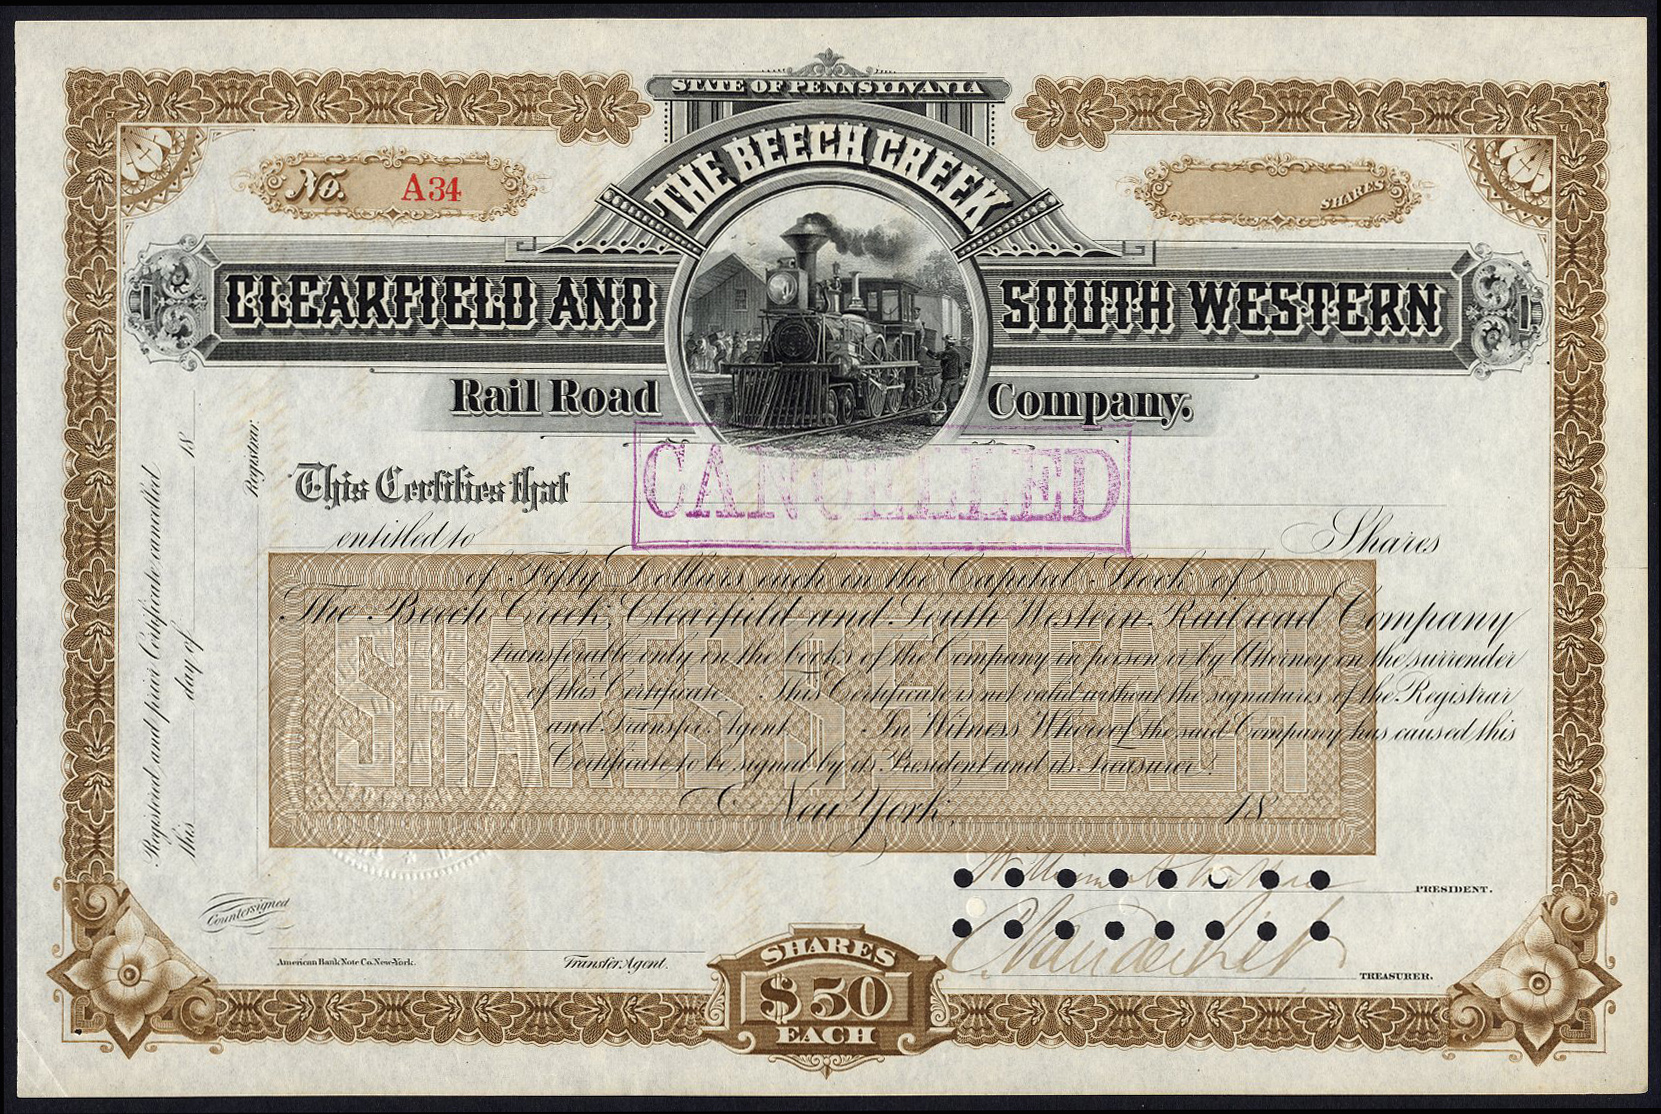 STATE OF PENNSYLVANIA
THE BEECH CREEK
No. A34
SHARES
CLEARFIELD AND SOUTH WESTERN
Rail Road Company.
CANCELLED
This Certifies that
entitled to Shares
of Fifty Dollars each in the Capital Stock of
The Beech Creek, Clearfield and South Western Railroad Company
transferable only on the books of the Company in person or by Attorney on the surrender
of this Certificate. This Certificate is not valid without the signatures of the Registrar
and Transfer Agent. In Witness Whereof the said Company has caused this
Certificate to be signed by its President and its Treasurer.
New York, 18
SHARES $50 EACH
Registered and prior Certificate cancelled
this day of 18
Registrar
PRESIDENT.
C. Vanderbilt
TREASURER.
Countersigned
American Bank Note Co. New-York.
Transfer Agent.
SHARES
$50
EACH